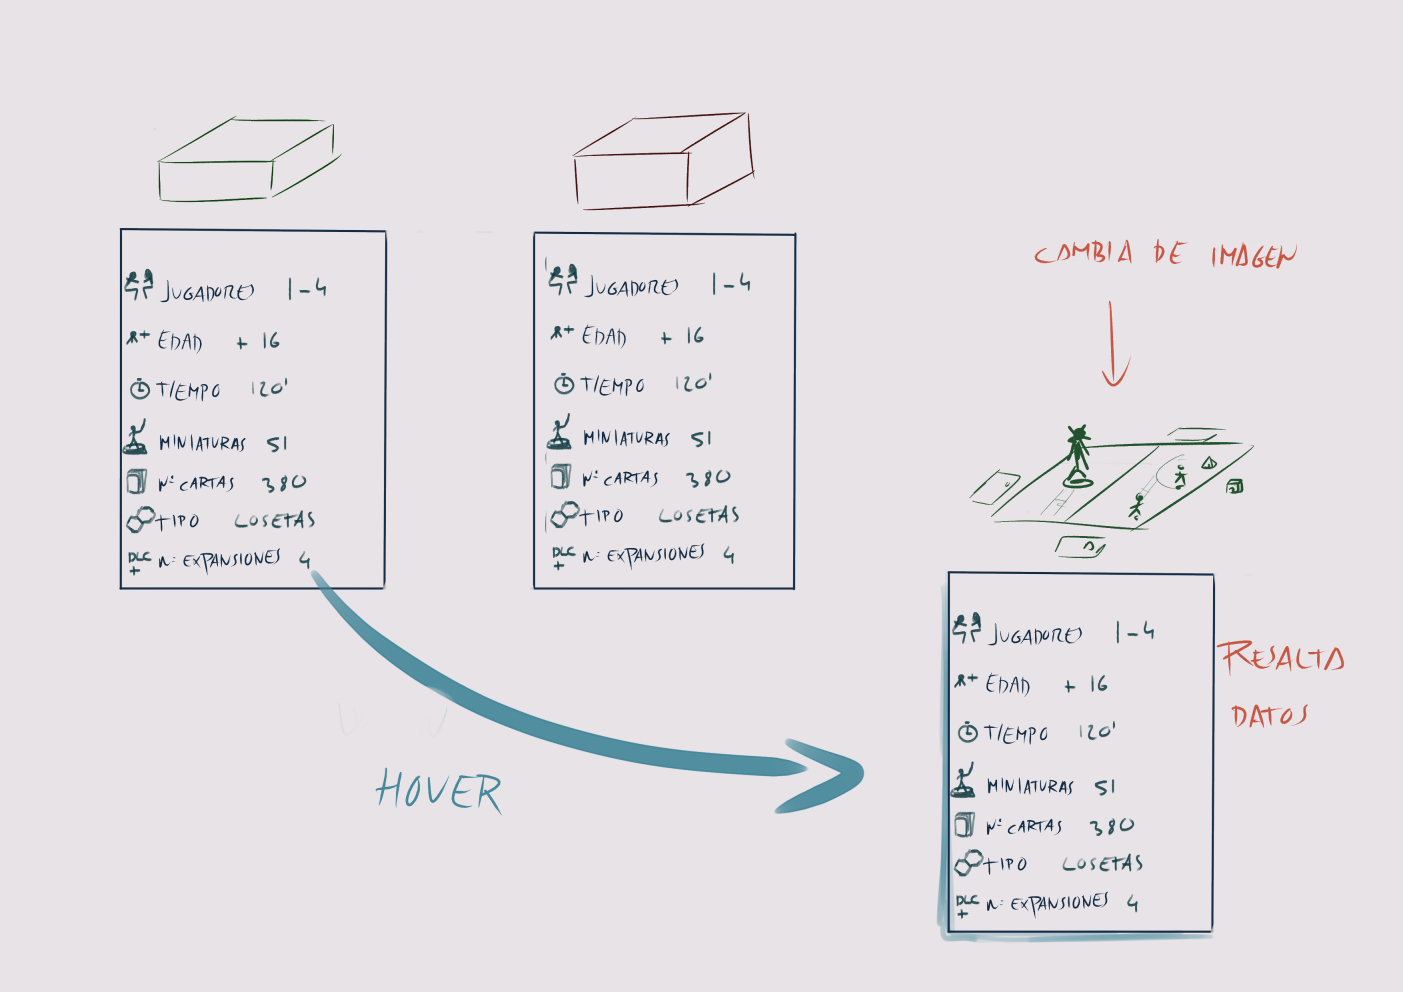 JUGADORES 1-4
R+ EDAD + 16
TIEMPO 120'
MINIATURAS 51
Nº CARTAS 380
TIPO LOSETAS
DLC + n: EXPANSIONES 4
JUGADORES 1-4
R+ EDAD + 16
TIEMPO 120'
MINIATURAS 51
Nº CARTAS 380
TIPO LOSETAS
DLC + n: EXPANSIONES 4
HOVER
CAMBIA DE IMAGEN
JUGADORES 1-4
R+ EDAD + 16
TIEMPO 120'
MINIATURAS 51
Nº CARTAS 380
TIPO LOSETAS
DLC + n: EXPANSIONES 4
RESALTA
DATOS